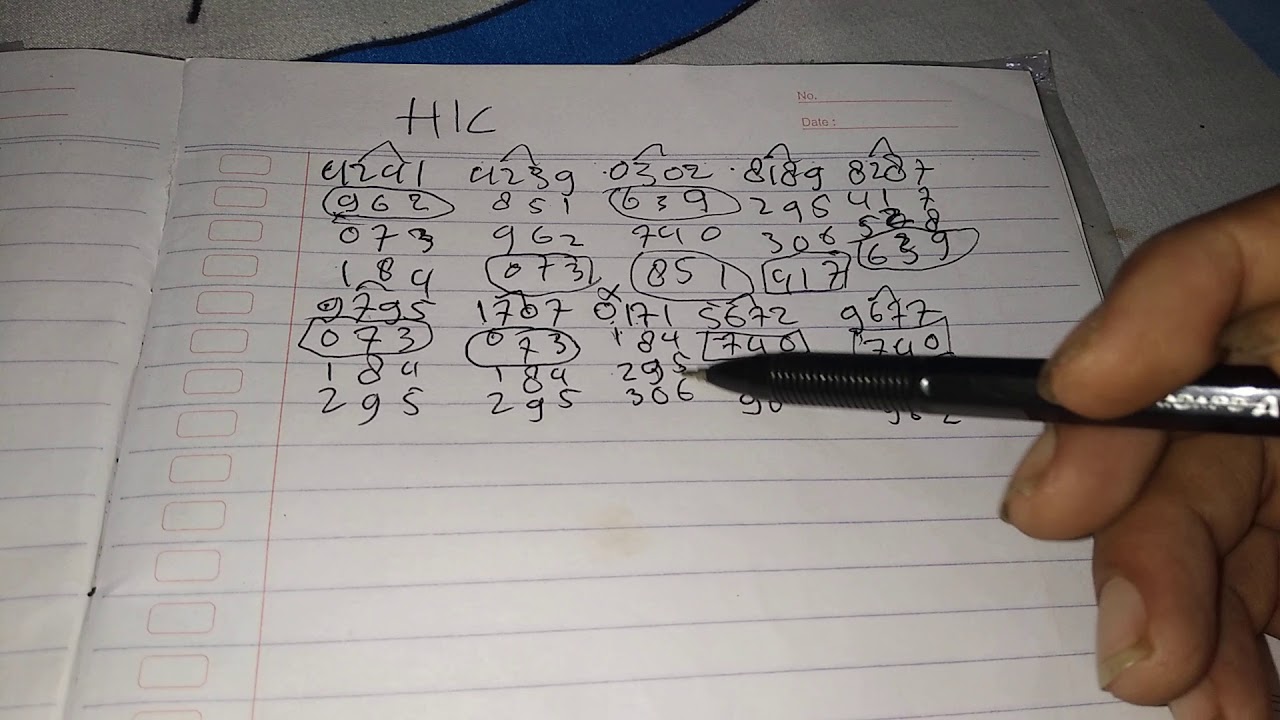 No.
Date :
HK
4241 4239 0302 8189 8287
962 851 639 295 417
073 962 740 306 528
184 073 851 417 639
9795 1707 0171 5672 9677
073 073 184 740 740
184 184 295
295 295 306